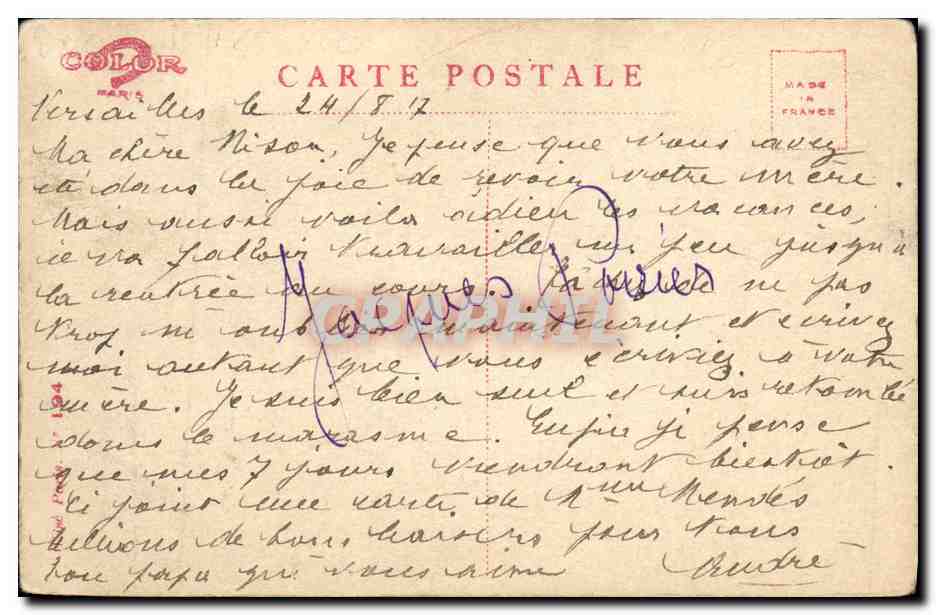 COLOR
PARIS
CARTE POSTALE
MADE
IN
FRANCE
Versailles le 24/8 17
Ma chère Nison, Je pense que vous avez
été dans la joie de revoir votre mère.
Mais aussi voila adieu les vacances,
il va falloir travailler un peu jusqu'à
la rentrée du cours. ne pas
trop m'oublier maintenant et écrivez
moi autant que vous écriviez à votre
mère. Je suis bien seul et suis retombé
dans le marasme. Enfin je pense
que mes 7 jours viendront bientôt.
Ci joint une carte de Mme Mendès
millions de bons baisers pour vous
ton papa qui vous aime André
Jacques
CPAPHIL
194